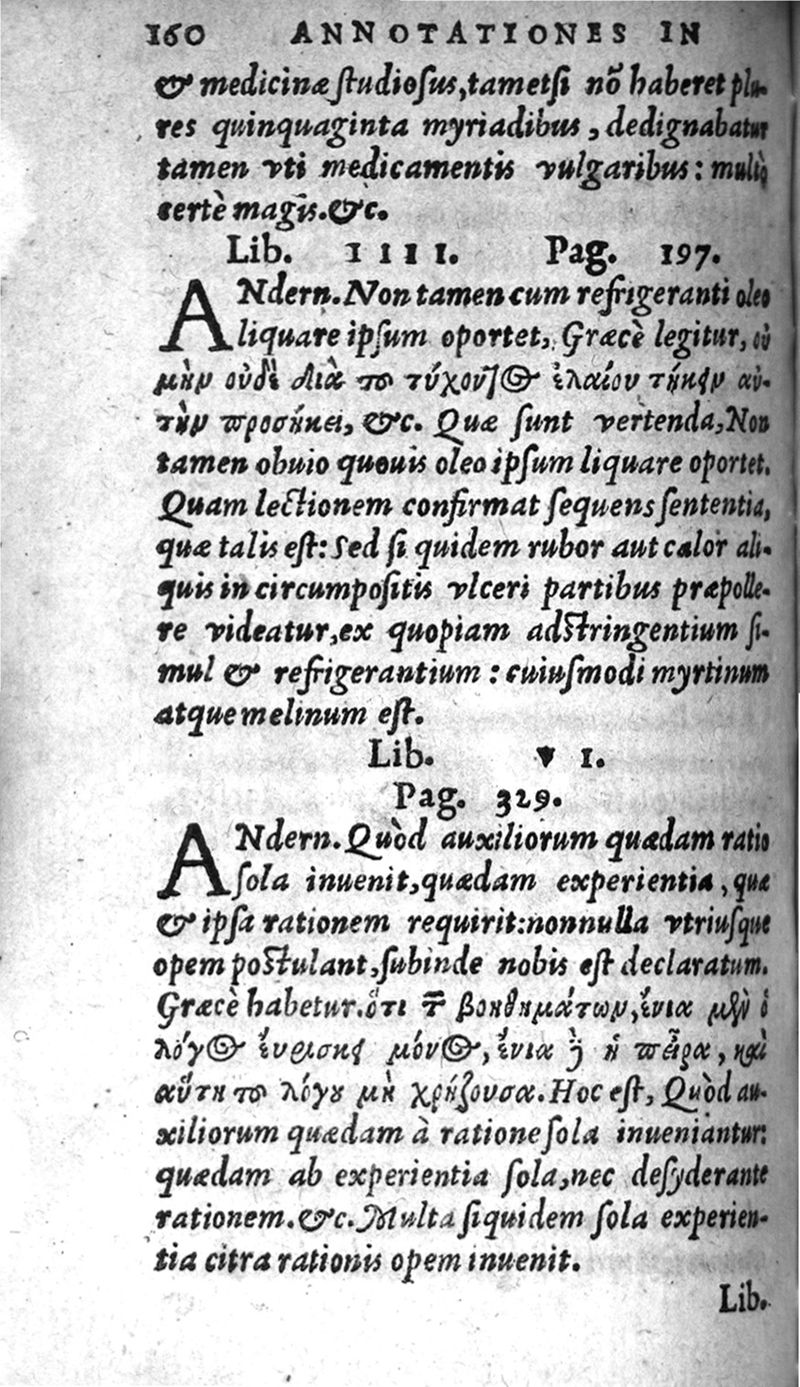 160 ANNOTATIONES IN
& medicinæ ſtudioſus, tametſi nõ haberet plu-
res quinquaginta myriadibus, dedignabatur
tamen vti medicamentis vulgaribus: multò
certè magis. &c.
Lib. IIII. Pag. 197.
ANdern. Non tamen cum refrigeranti oleo
liquare ipſum oportet, Græcè legitur, οὐ
μὴν οὐδὲ διὰ τοῦ τύχοντος ἐλαίου τήκειν αὐ-
τὴν προσήκει, &c. Quæ ſunt vertenda, Non
tamen obuio quouis oleo ipſum liquare oportet.
Quam lectionem confirmat ſequens ſententia,
quæ talis eſt: Sed ſi quidem rubor aut calor ali-
quis in circumpoſitis vlceri partibus præpolle-
re videatur, ex quopiam adſtringentium ſi-
mul & refrigerantium: cuiuſmodi myrtinum
atque melinum eſt.
Lib. VI.
Pag. 329.
ANdern. Quòd auxiliorum quædam ratio
ſola inuenit, quædam experientia, quæ
& ipſa rationem requirit: nonnulla vtriuſque
opem poſtulant, ſubinde nobis eſt declaratum.
Græcè habetur. ὅτι τῶν βοηθημάτων, ἔνια μὲν ὁ
λόγος εὑρίσκει μόνος, ἔνια δὲ ἡ πεῖρα, καὶ
αὕτη τοῦ λόγου μὴ χρῄζουσα. Hoc eſt, Quòd au-
xiliorum quædam à ratione ſola inueniantur:
quædam ab experientia ſola, nec deſyderante
rationem. &c. Multa ſiquidem ſola experien-
tia citra rationis opem inuenit.
Lib.